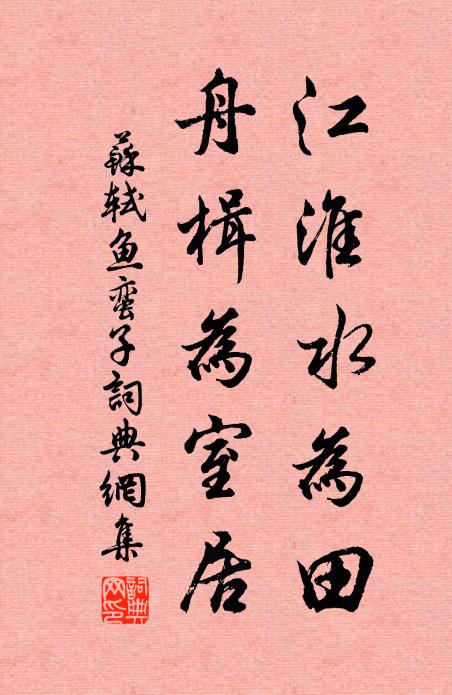 江淮水為田
舟楫為室居
蘇軾魚蛮子詞典網集
詞典網印